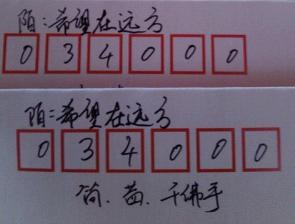 陌:希望在远方
034000
陌:希望在远方
034000
简.苗.千佛手